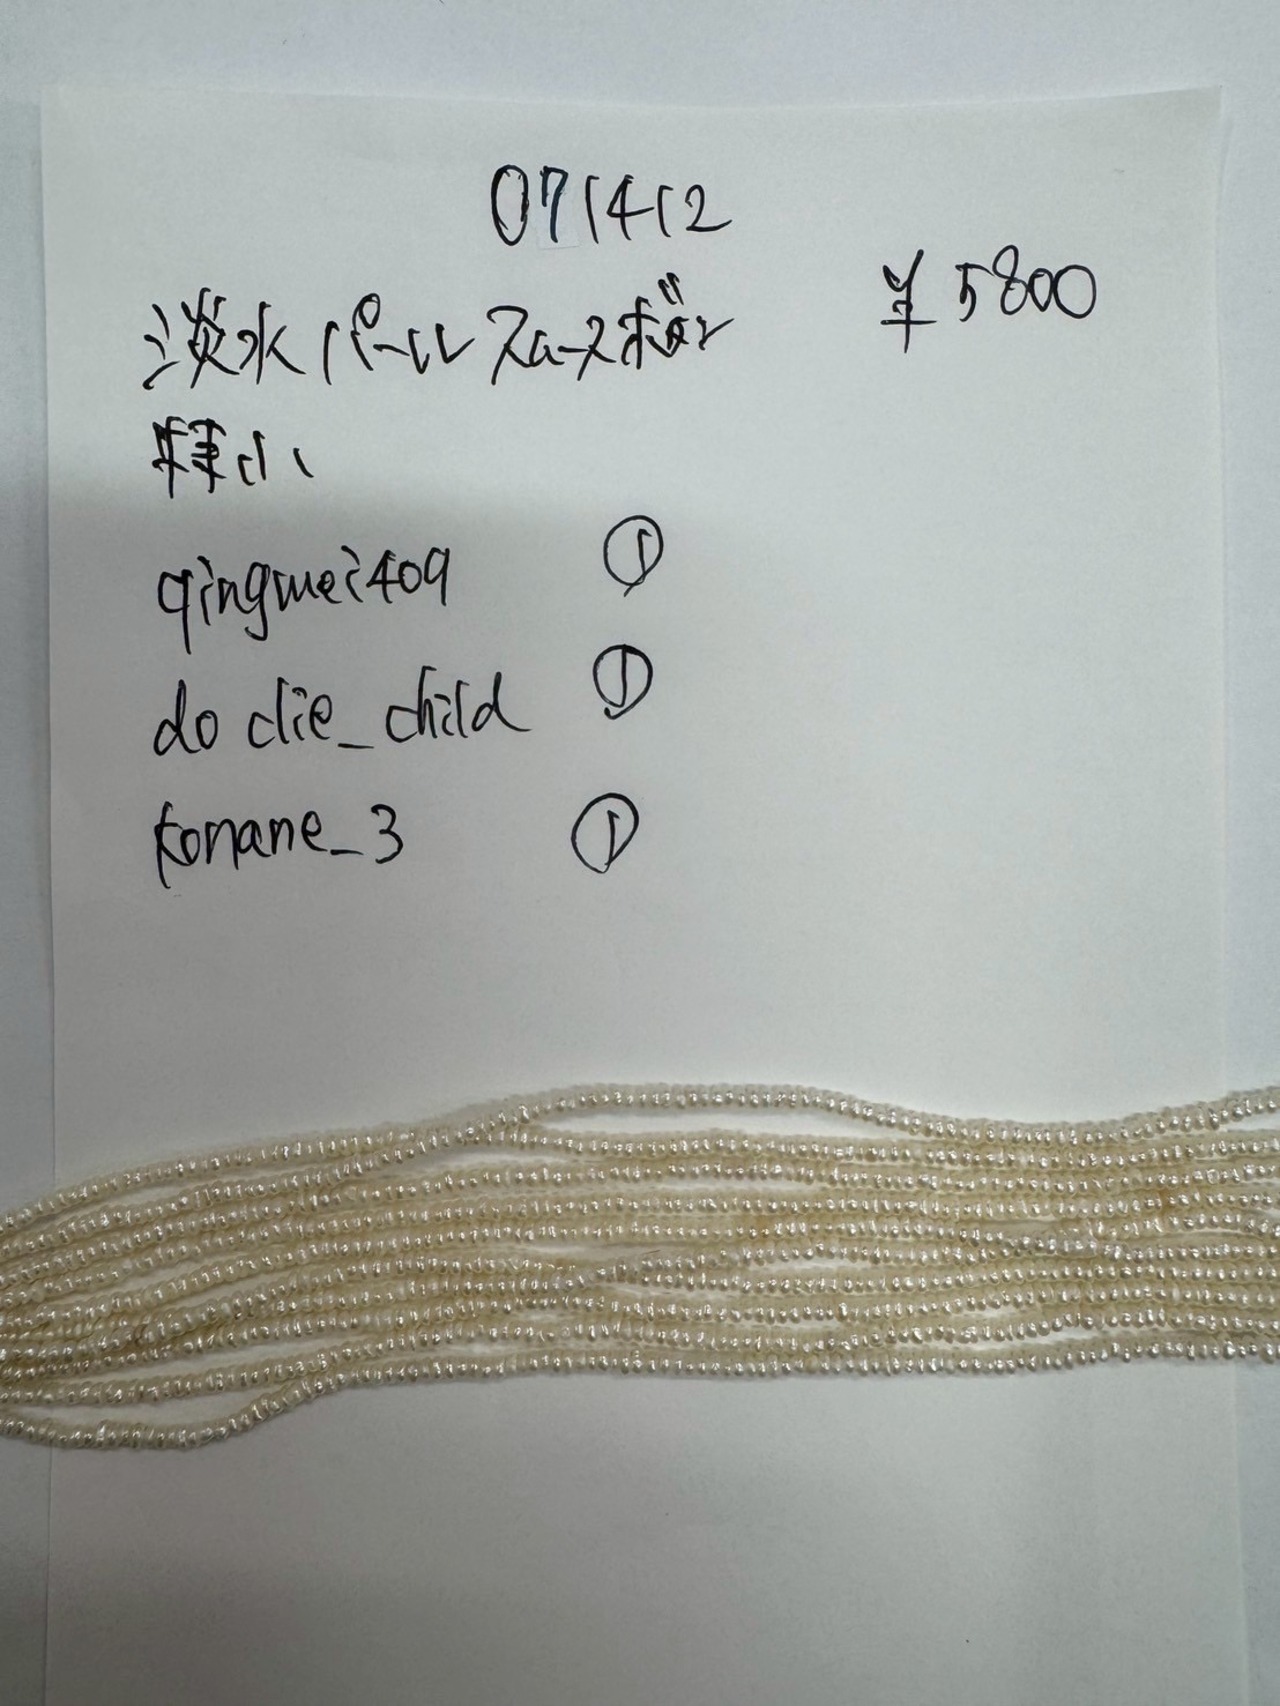 071412
¥5800
淡水パールスムースボタン
極小
qingmei409 ①
do clie_child ①
konane_3 ①